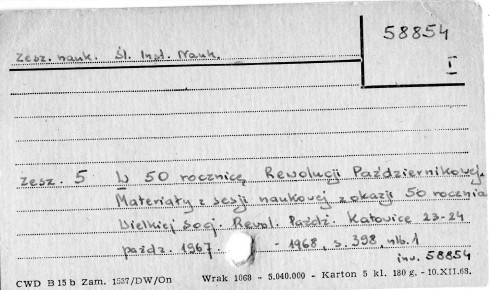 58854
Zesz. nauk. Śl. Inst. Nauk.
I
Zesz. 5 W 50 rocznicę Rewolucji Październikowej.
Materiały z sesji naukowej z okazji 50 rocznia
Wielkiej socj. Rewol. Paźdź. Katowice 23-24
paźdz. 1967. - 1968, s. 398, nlb. 1
inw. 58854
CWD B 15 b Zam. 1537/DW/On Wrak 1068 - 5.040.000 - Karton 5 kl. 180 g. - 10.XII.68.